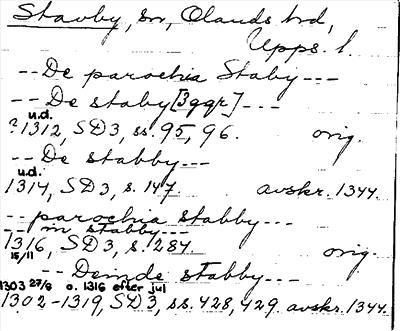 Stavby, sn, Olands hd,
Upps. l.
-- De parochia Staby ---
-- De staby [3ggr] ---
u.d.
? 1312, SD 3, ss. 95, 96. orig.
-- De stabby ---
u.d.
1314, SD 3, s. 147. avskr. 1344.
-- parochia stabby ---
-- in stabby ---
1316, SD 3, s. 284. orig.
15/11
-- Deinde stabby ---
1303 27/6 o. 1316 efter jul
1302-1319, SD 3, ss. 428, 429 avskr. 1344.